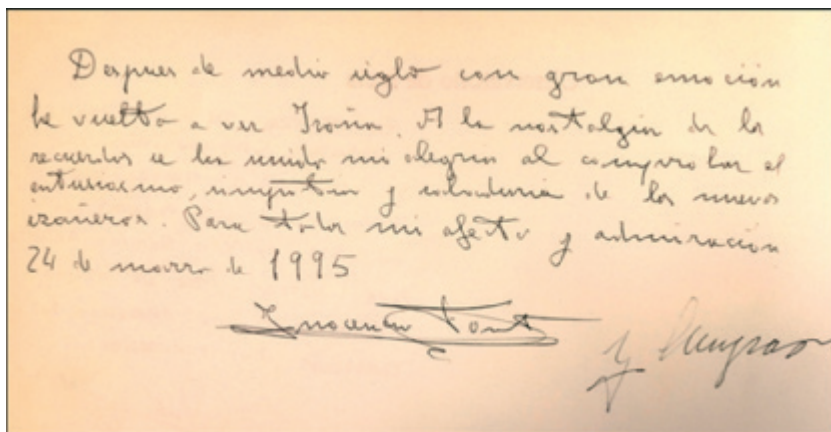 Despues de medio siglo con gran emoción
he vuelto a ver Izaña. A la nostalgia de los
recuerdos se ha unido mi alegria al comprobar el
entusiasmo, simpatia y sabiduria de los nuevos
izañeros. Para todos mi afecto y admiración
24 de marzo de 1995
Inocencio Font